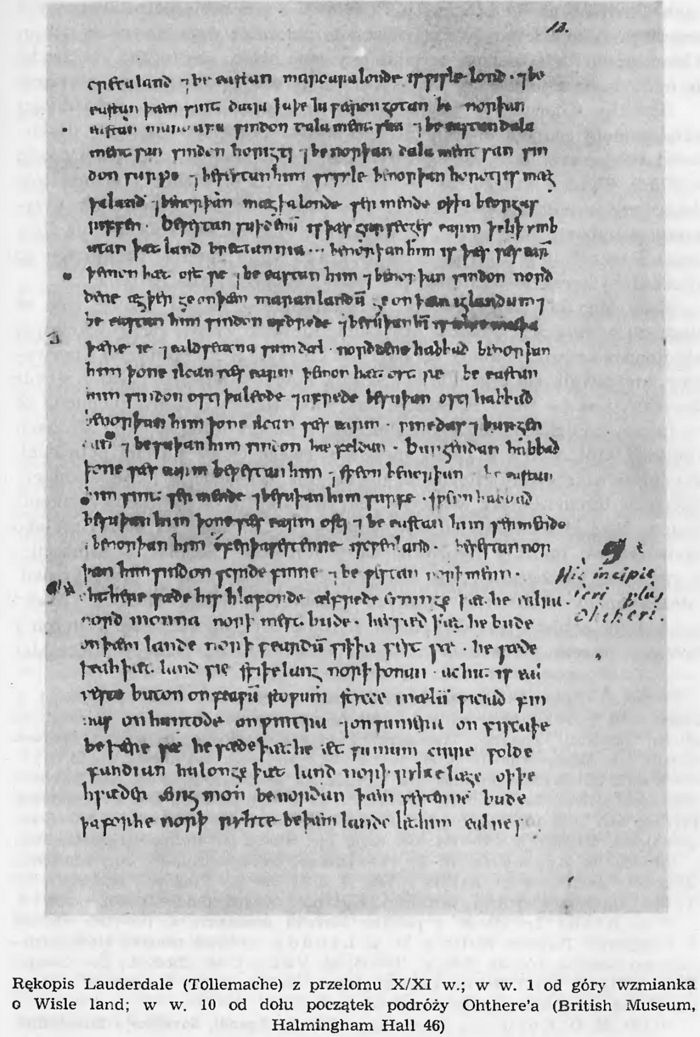 12.
creca land ⁊ be eastan maroara londe is wisle lond · ⁊ be
eastan þæm sint datia þa þe iu wæron gotan be norþan
eastan maroara sindon dala mentsan ⁊ be eastan dala
mentsan sindon horigti ⁊ be norþan dala mentsan sin
don surpe ⁊ bewestan him sysyle be norþan horoti is mæg
þa land ⁊ be norþan mægþa londe sermende oþþa beorgas
riffen · Bewestan suþdenū is þæs garsecges earm þe liþ ymb
utan þæt land brettannia ... benorþan him is þæs sæs earm
þe mon hæt ost sæ ⁊ be eastan him ⁊ be norþan sindon norð
dene ægþer ge on þæm maran landū ge on þæm iglandum ⁊
be eastan him sindon afdrede ⁊ besuþan hī is
þære ie ⁊ ealdseaxna sum dæl · norðdene habbað benorþan
him þone ilcan sæs earm þemon hæt ost sæ be eastan
him sindon osti þa leode ⁊ afrede besuþan osti habbað
benorþan him þone ilcan sæs earm · winedas ⁊ burgen
dan ⁊ be suþan him sindon hæfeldan · Burgendan habbað
þone sæs earm bewestan him ⁊ sweon benorþan · be eastan
him sint sermende ⁊ besuþan him surfe · sweon habbað
besuþan him þone sæs earm osti ⁊ be eastan him sermende
benorþan him ofer þa westenne is cwenland · bewestan nor
þan him sindon scridefinne ⁊ be westan norþmenn ·
Ohthere sæde his hlaforde ælfrede cyninge þæt he ealra
norð monna norþ mest bude · he cwæð þæt he bude
on þæm lande norþ weardū wiþ þa west sæ · he sæde
þeah þæt land sie swiþe lang norþ þonan · ac hit is eal
weste buton on feawū stowum stycce mælū wiciað fin
nas on huntoðe on wintra ⁊ on sumera on fiscaþe
be þære sæ he sæde þæt he æt sumum cirre wolde
fandian hu longe þæt land norþ ryhte læge oþþe
hwæðer ænig mon be norðan þæm westenne bude
þa for he norþ ryhte be þæm lande let him ealne
Hic incipit
Ohtheri.
Rękopis Lauderdale (Tollemache) z przełomu X/XI w.; w w. 1 od góry wzmianka
o Wisle land; w w. 10 od dołu początek podróży Ohthere'a (British Museum,
Halmingham Hall 46)